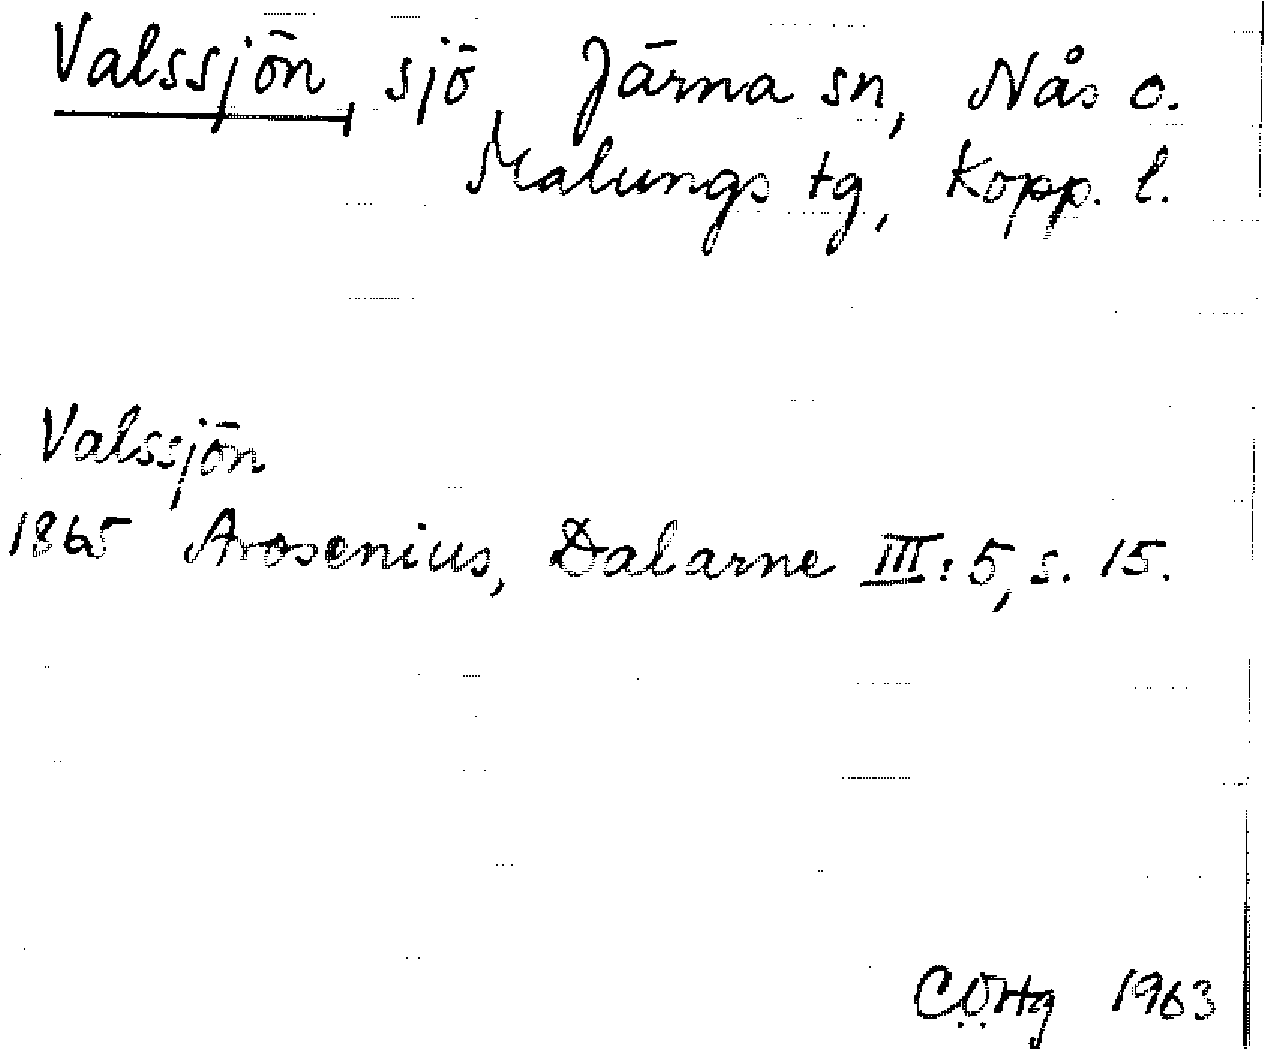 Valssjön, sjö, Järna sn, Nås o.
Malungs tg, Kopp. l.
Valssjön
1865 Arosenius, Dalarne III:5, s. 15.
CÖHg 1963